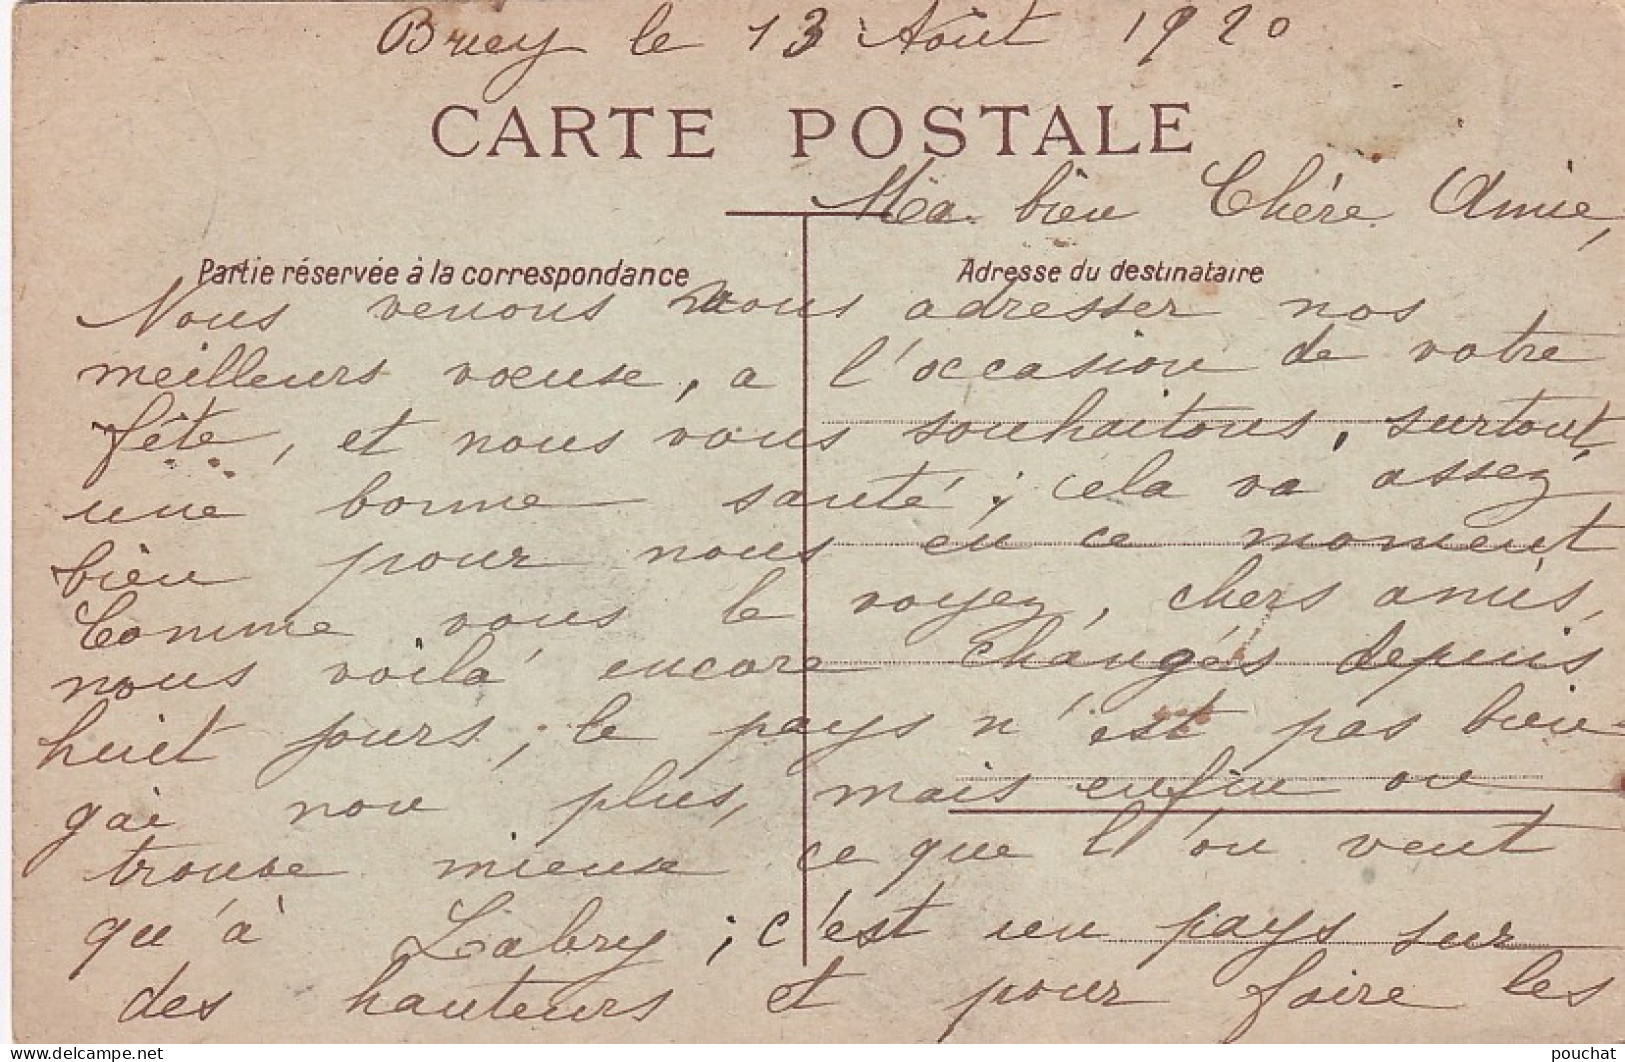 Briey le 13 Août 1920
CARTE POSTALE
Ma bien Chère Amie,
Partie réservée à la correspondance
Adresse du destinataire
Nous venons vous adresser nos
meilleurs voeuse, a l'occasion de votre
fête, et nous vous souhaitons, surtout,
une bonne santé; cela va assez
bien pour nous en ce moment
Comme vous le voyez, chers amis,
nous voilà encore changés depuis
huiet jours; le pays n'est pas bien
gai non plus, mais enfin on
trouve mieuse ce que l'on veut
qu'à Labry; c'est un pays sur
des hauteurs et pour faire les
pouchat
© delcampe.net